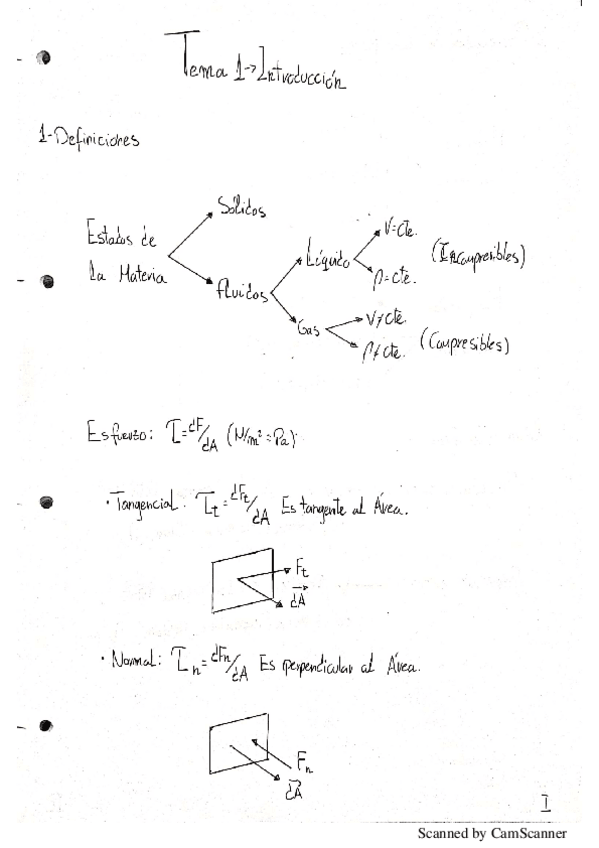 Tema 1→Introducción
1-Definiciones
Sólidos
Estados de
la Materia
Fluidos
Líquido
V=cte.
ρ=cte.
(Incompresibles)
Gas
V≠cte.
ρ≠cte.
(Compresibles)
Esfuerzo: τ=dF/dA (N/m²=Pa)
· Tangencial: τt=dFt/dA Es tangente al Área.
Ft
dA
· Normal: τn=dFn/dA Es perpendicular al Área.
Fn
dA
I
Scanned by CamScanner